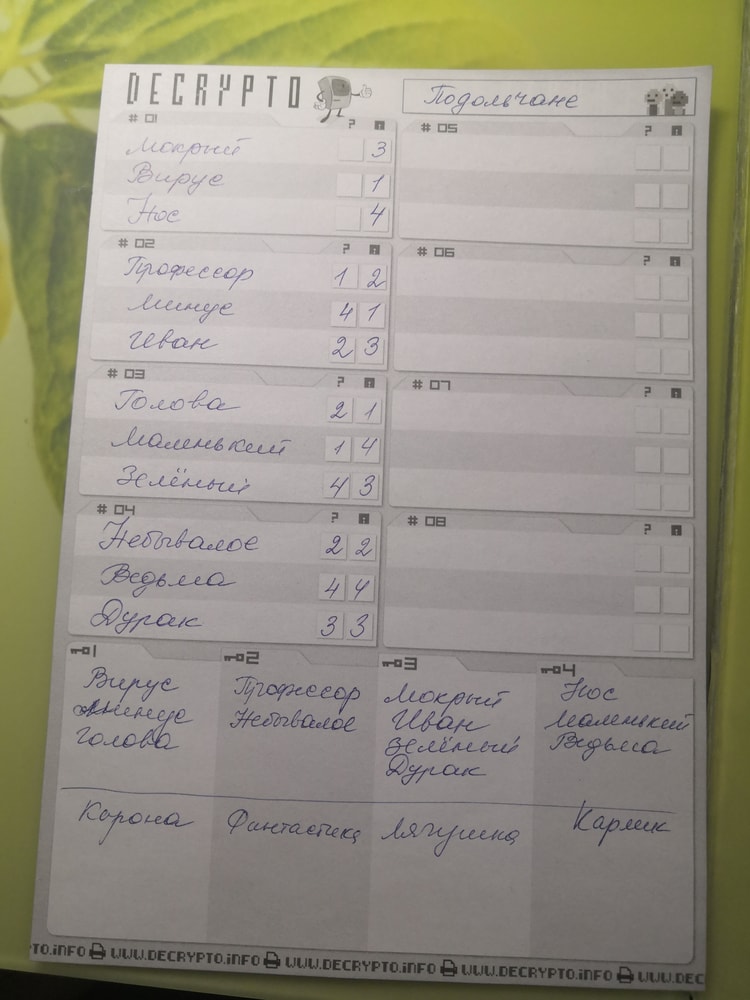 DECRYPTO
Подольчане
# 01 ?
Мокрый 3
Вирус 1
Нос 4
# 02 ?
Профессор 1 2
Минус 4 1
Иван 2 3
# 03 ?
Голова 2 1
Маленький 1 4
Зелёный 4 3
# 04 ?
Небывалое 2 2
Ведьма 4 4
Дурак 3 3
# 05 ?
# 06 ?
# 07 ?
# 08 ?
1
Вирус
Минус
Голова
Корона
2
Профессор
Небывалое
Фантастика
3
Мокрый
Иван
Зелёный
Дурак
Лягушка
4
Нос
Маленький
Ведьма
Карлик
TO.INFO WWW.DECRYPTO.INFO WWW.DECRYPTO.INFO WWW.DECRYPTO.INFO WWW.DEC